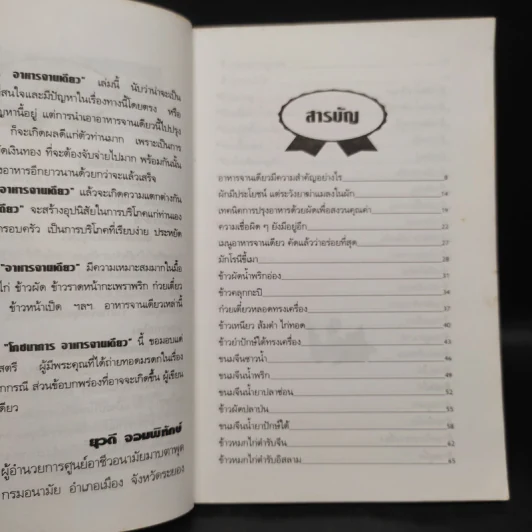 อาหารจานเดียว" เล่มนี้ นับว่าน่าจะเป็น
สนใจและมีปัญหาในเรื่องทางนี้โดยตรง หรือ
นี้อยู่ แต่การนำเอาอาหารจานเดียวนี้ไปปรุง
ก็จะเกิดผลดีแก่ตัวท่านมาก เพราะเป็นการ
เงินทอง ที่จะต้องจับจ่ายไปมาก พร้อมกันนั้น
อาหารอีกยาวนานด้วยกว่าจะแล้วเสร็จ
อาหารจานเดียว" แล้วจะเกิดความแตกต่างกัน
จะสร้างอุปนิสัยในการบริโภคแก่ท่านเอง
ครอบครัว เป็นการบริโภคที่เรียบง่าย ประหยัด
"อาหารจานเดียว" มีความเหมาะสมมากในมื้อ
ไก่ ข้าวผัด ข้าวราดหน้ากะเพราพริก ก๋วยเตี๋ยว
ข้าวหน้าเป็ด ฯลฯ อาหารจานเดียวเหล่านี้
"โภชนาการ อาหารจานเดียว" นี้ ขอมอบแด่
ผู้มีพระคุณที่ได้ถ่ายทอดมรดกในเรื่อง
ส่วนข้อบกพร่องที่อาจจะเกิดขึ้น ผู้เขียน
เดียว
ยุวดี จอมพิทักษ์
ผู้อำนวยการศูนย์อาชีวอนามัยมาบตาพุด
กรมอนามัย อำเภอเมือง จังหวัดระยอง
สารบัญ
อาหารจานเดียวมีความสำคัญอย่างไร 8
ผักมีประโยชน์ แต่ระวังยาฆ่าแมลงในผัก 14
เทคนิคการปรุงอาหารด้วยผัดเพื่อสงวนคุณค่า 18
ความเชื่อผิด ๆ ยังมีอยู่อีก 22
เมนูอาหารจานเดียว คัดแล้วว่าอร่อยที่สุด 27
มักโรนีขี้เมา 28
ข้าวผัดน้ำพริกอ่อง 31
ข้าวคลุกกะปิ 34
ก๋วยเตี๋ยวหลอดทรงเครื่อง 37
ข้าวเหนียว ส้มตำ ไก่ทอด 40
ข้าวยำปักษ์ใต้ทรงเครื่อง 43
ขนมจีนซาวน้ำ 46
ขนมจีนน้ำพริก 49
ขนมจีนน้ำยาปลาช่อน 52
ข้าวผัดปลาป่น 55
ขนมจีนน้ำยาปักษ์ใต้ 58
ข้าวหมกไก่ตำรับจีน 62
ข้าวหมกไก่ตำรับอิสลาม 65